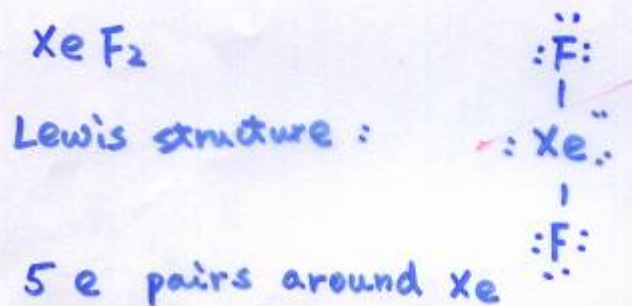 XeF₂
Lewis structure :
:F̈:
|
: Xe :̈
|
:F̤:
5 e pairs around Xe